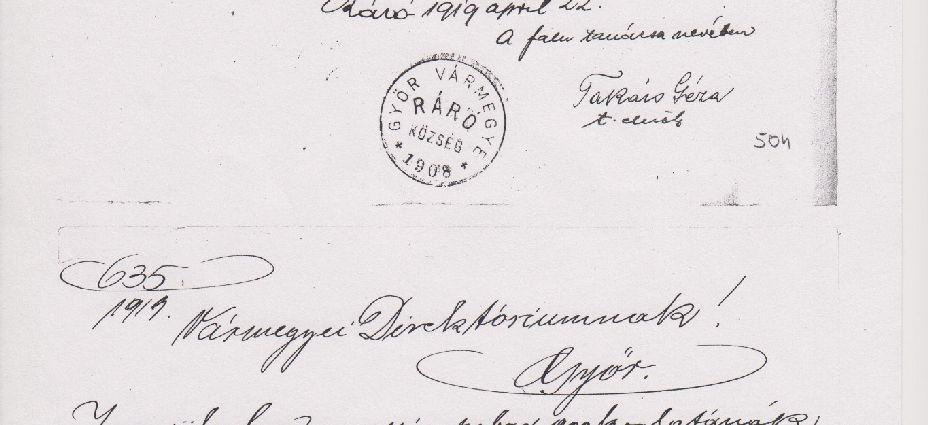 Ráró 1919 april 22.
A falu tanácsa nevében
GYŐR VÁRMEGYE
RÁRÓ
KÖZSÉG
* 1908 *
Takács Géza
t. elnök
504
635.
1919.
Vármegyei Direktóriumnak!
Győr.